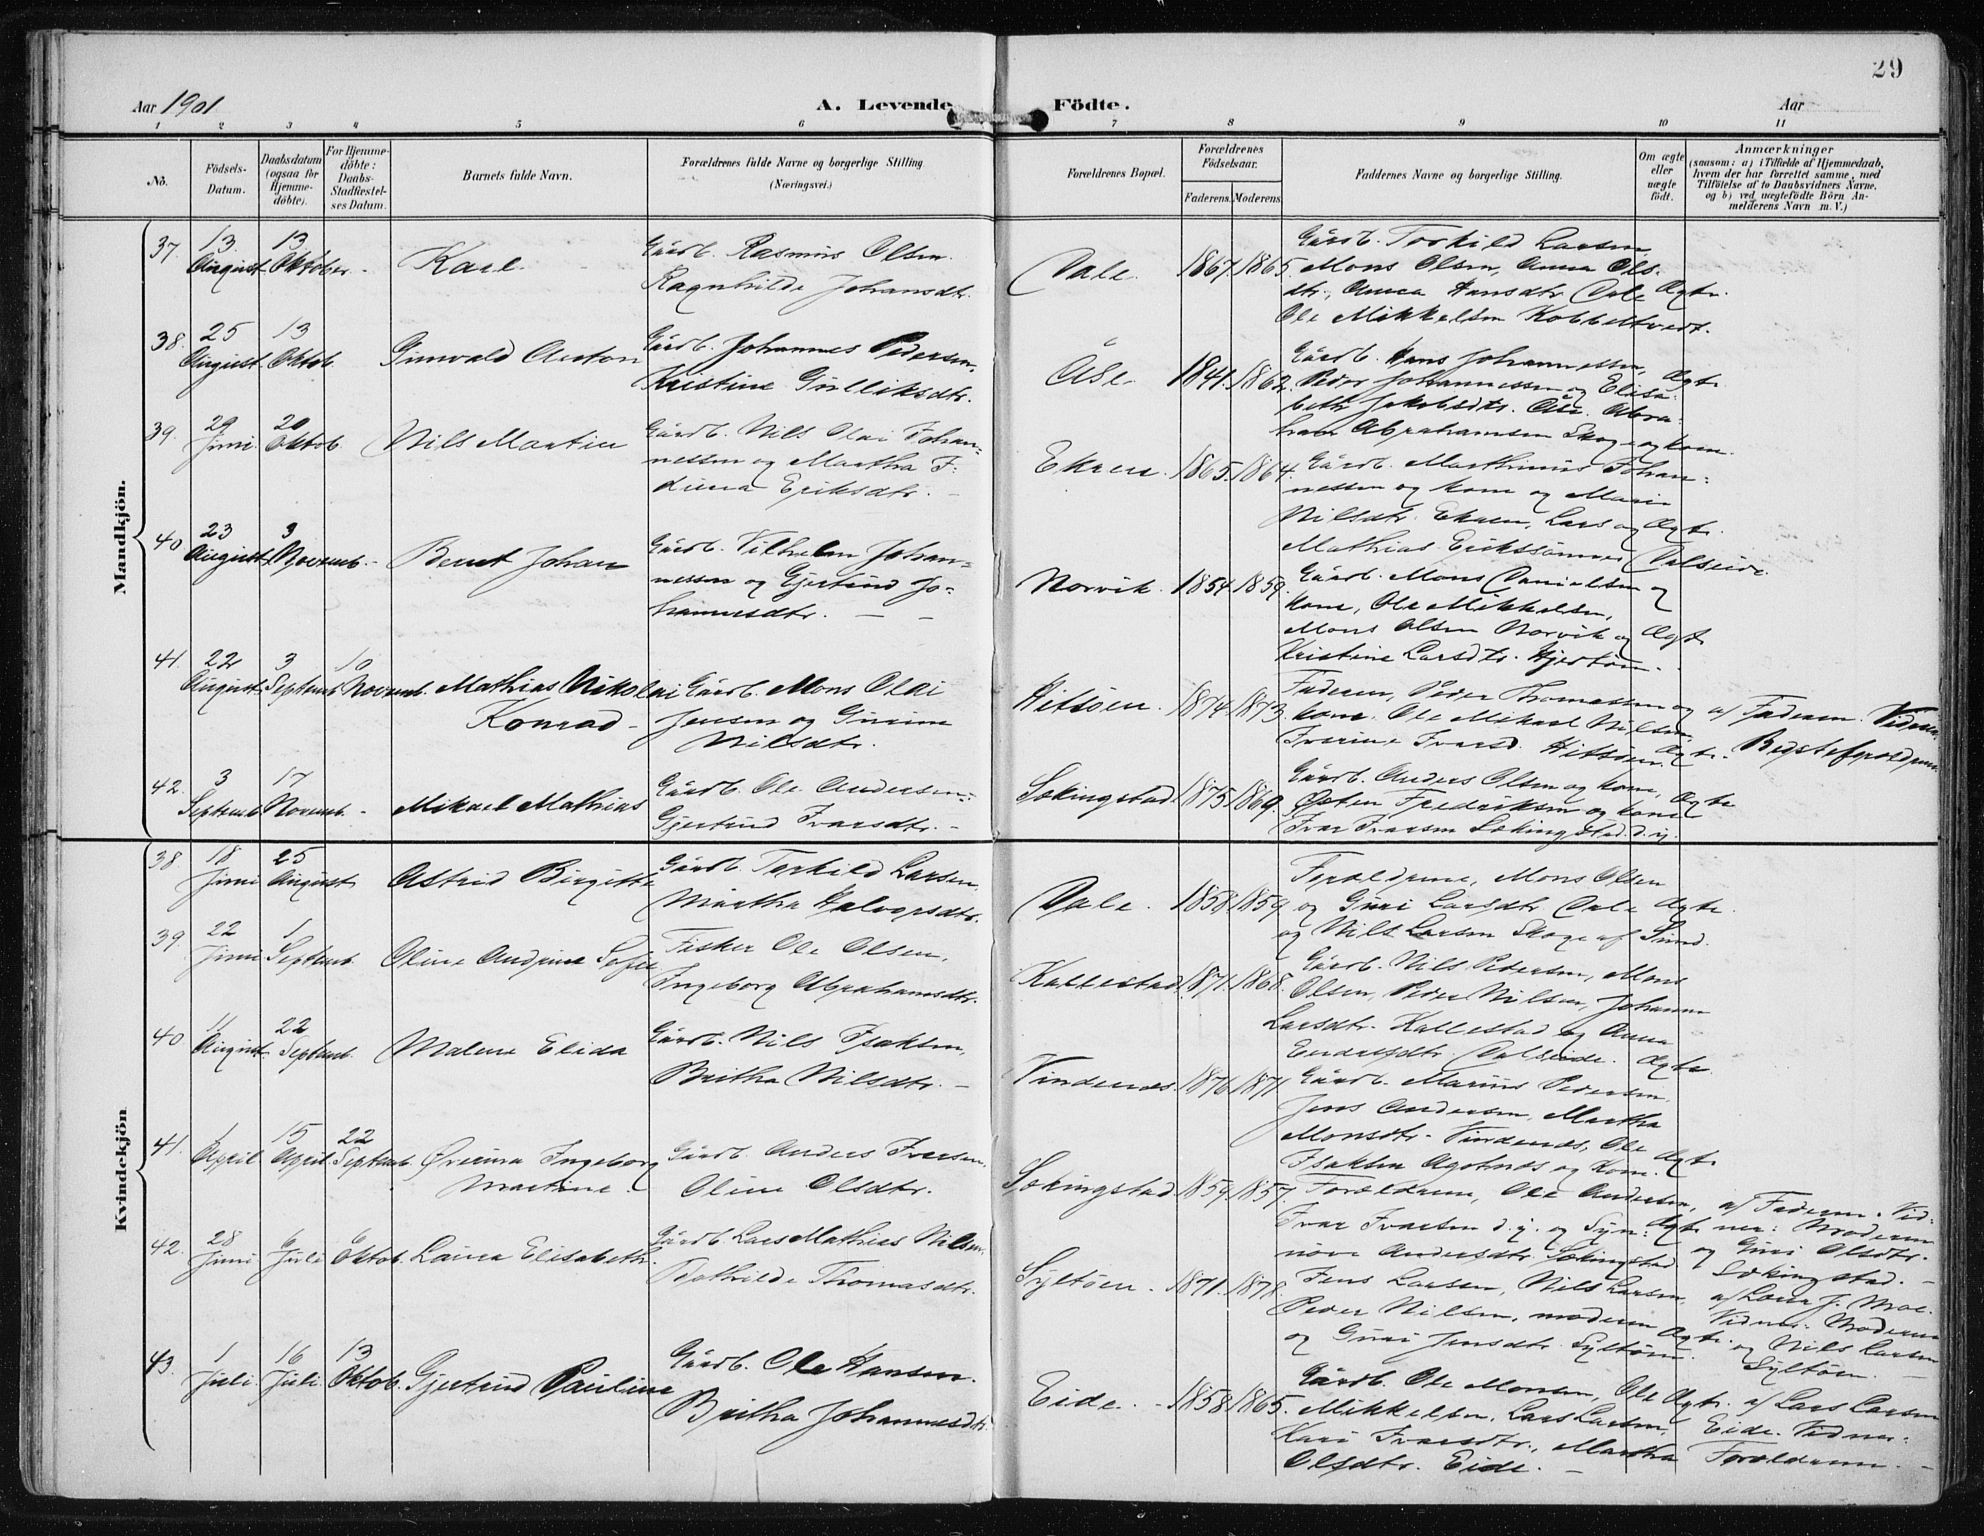 29
Aar 1901
A. Levende Födte.
Aar
1 2 3 4 5 6 7 8 9 10 11
No.
Födsels-Datum.
Daabsdatum (ogsaa for Hjemme-döbte).
For Hjemme-döbte: Daabs-Stadfæstel-ses Datum.
Barnets fulde Navn.
Forældrenes fulde Navne og borgerlige Stilling (Næringsvei.)
Forældrenes Bopæl.
Forældrenes Födselsaar.
Faderens. Moderens.
Faddernes Navne og borgerlig Stilling.
Om ægte eller uægte födt.
Anmærkninger
(saasom: a) i Tilfælde af Hjemmedaab, hvem der har forrettet samme, med Tilföielse af to Daabsvidners Navne, og b) ved uægtefödte Börn An-melderens Navn m. V.)
Mandkjön.
37. 13 August. 13 Oktober. -
Karl.
Gårdb. Rasmus Olsen.
Ragnhilde Johansdtr.
Dale. 1867. 1865.
Gårdb. Torkild Larsen,
Mons Olsen, Anna Ols-
dtr., Anna Hansdtr Dale Ægte.
Ole Mikkelsen Kobbeltvedt.
38. 25 August. 13 Oktob.
Gunvald Anton
Gårdb. Johannes Pedersen,
Kristine Gulliksdtr.
Åse. 1841. 1862.
Gårdb. Hans Johannessen, Ægte
Peder Johannessen og Elisa-
beth Jakobsdtr. Åse. Abra-
ham Abrahamsen Skoge og kone.
39. 29 Juni. 20 Oktob.
Nils Martin
Gårdb. Nils Olai Johan-
nessen og Martha I-
dina Eriksdtr. -
Ekren. 1865. 1864.
Gårdb. Marthinus Johan-
nessen og kone og Marie
Nilsdtr. Ekren, Lars og Ægte.
Mathias Erikssönner Dalseide.
40 23 August. 3 Novemb. -
Bernt Johan
Gårdb. Vilhelm Johan-
nessen og Gjertrud Jo-
hannesdtr. - -
Norvik. 1854. 1859.
Gårdb. Mons Danielsen og
kone, Ole Mikkelsen,
Mons Olsen Norvik og Ægte
Kristine Larsdtr. Hjertöen. -
41. 22 August. 3 Septemb. 10 Novemb.
Mathias Nikolai
Konrad -
Gårdb. Mons Olai
Jensen og Gurine
Nilsdtr.
Hitsöen. 1874. 1873.
Faderen, Peder Thomassen og
kone. Ole Mikael Nilsen,
Iverine Ivarsd. Hitsöen. Ægte.
af Faderen. Vidner:
Bedsteforældrene.
42. 3 Septemb. 17 Novemb. -
Mikael Mathias
Gårdb. Ole Andersen.
Gjertrud Ivarsdtr. -
Sækingstad. 1875. 1869.
Gårdb. Anders Olsen og kone, Ægte
Østen Fredriksen og kone
Ivar Ivarsen Sækingstad d. y.
Kvindekjön
38. 18 Juni 25 August.
Astrid Birgitte
Gårdb. Torkild Larsen,
Martha Halvorsdtr.
Dale. 1858. 1859
Forældrene, Mons Olsen
og Guri Larsdtr Dale Ægte.
og Nils Larsen Skoge af Sund.
39. 22 Juni 1 Septemb.
Oline Andrina Sofie
Fisker Ole Olsen,
Ingeborg Abrahamsdtr.
Kallestad. 1871. 1868.
Gårdb. Nils Pedersen, Mons
Olsen, Peder Nilsen, Johanna
Larsdtr. Kallestad og Anna
Endresdtr. Dalseide. Ægte.
40 11 August. 22 Septemb.
Malene Elida
Gårdb. Nils Isaksen,
Britha Nilsdtr. -
Vindenæs. 1876. 1871.
Gårdb. Marius Pedersen,
Jens Andersen, Martha
Monsdtr. Vindenæs, Ole Ægte
Isaksen Agotnæs og kone.
41. 1 April. 15 April. 22 Septemb.
Øverina Ingeborg
Martine.
Gårdb. Anders Ivarsen,
Oline Olsdtr.
Sækingstad. 1859. 1857.
Forældrene, Ole Andersen,
Ivar Ivarsen d. y. og Syn- Ægte
növe Andersdtr. Sækingstad.
af Faderen. Vid-
ner: Moderen
og Guri Olsdtr.
Sækingstad. -
42. 28 Juni 6 Juli 6 Oktob.
Laura Elisabeth.
Gårdb. Lars Mathias Nilsen.
Bothilde Thomasdtr.
Syltöen. - 1871. 1878.
Jens Larsen, Nils Larsen,
Peder Nilsen, moderen Ægte.
og Guri Jensdtr. Syltöen.
af Lona J. Moe.
Vidner: Moderen
og Nils Larsen
Syltöen. -
43. 1 Juli. 16 Juli. 13 Oktob.
Gjertrud Pauline
Gårdb. Ole Hansen.
Britha Johannesdtr.
Eide. - 1858. 1865.
Gårdb. Ole Monsen, Ole Ægte.
Mikkelsen. Lars Larsen,
Kari Ivarsdtr., Martha
Olsdtr. Eide. -
af Lars Larsen
Eide. Vidner:
Forældrene. -